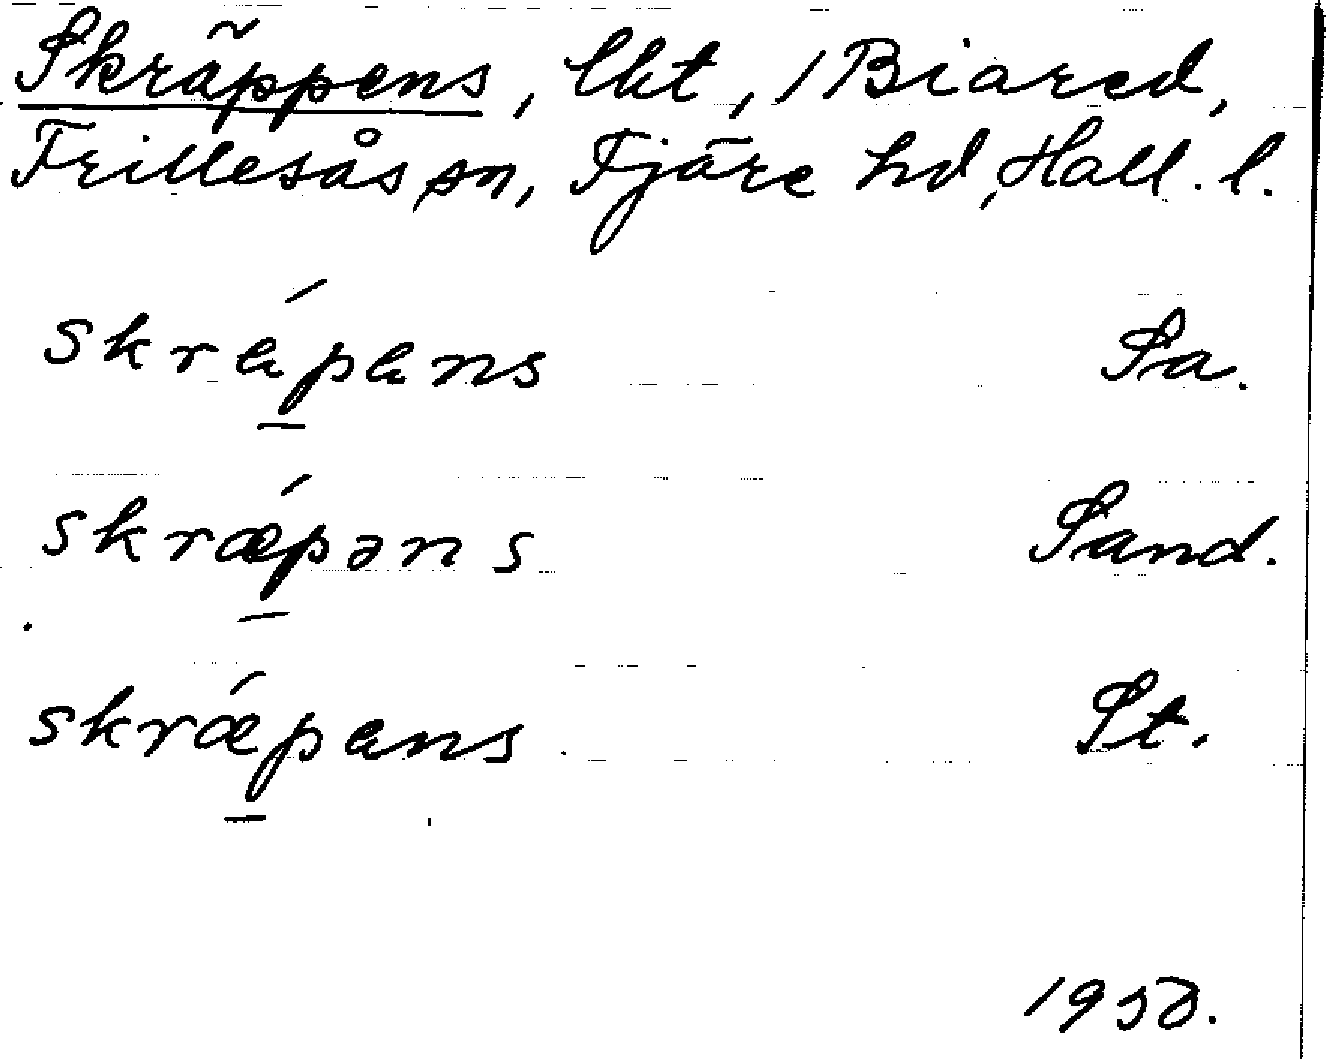 Skräppens, lht, 1 Biared,
Frillesås sn, Fjäre hd, Hall. l.
skrápans Sa.
skrǽpəns Sand.
skrǽpans St.